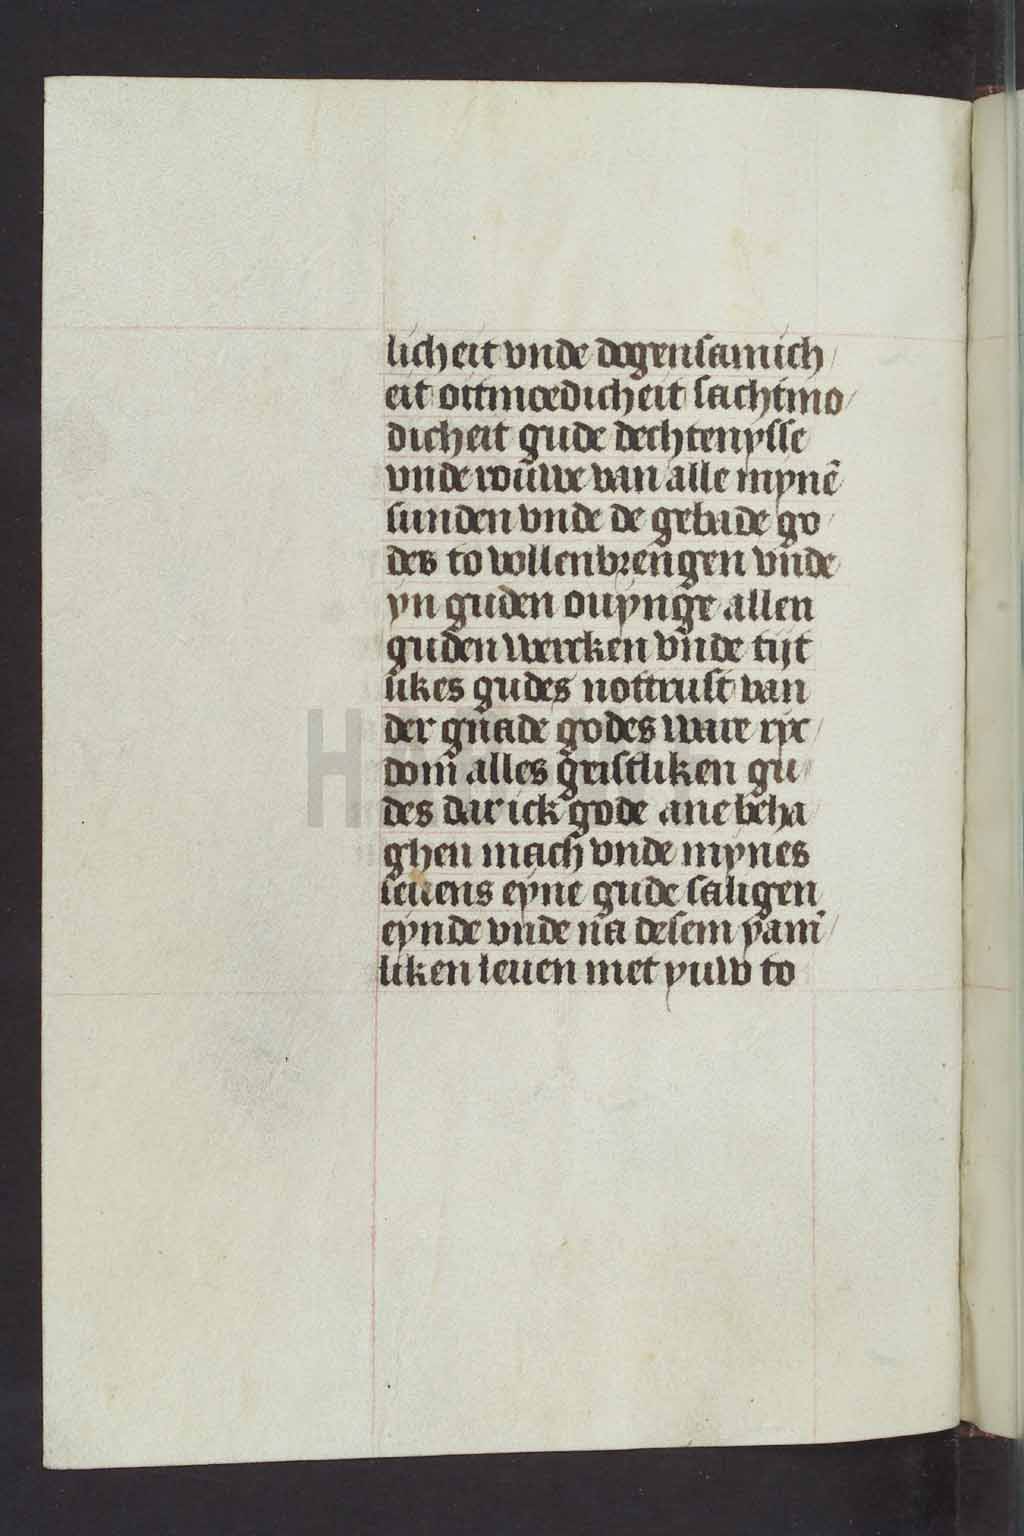 licheit vnde dogensamich/
eit oitmoedicheit sachtmo/
dicheit gude dechtenysse
vnde rouwe van alle mynē
sunden vnde de gebade go/
des to vollenbrengen vnde
yn guden ouynge allen
guden wercken vnde tijt
likes gudes nottrust van
der gnade godes ware ryc/
dom alles geistliken gu/
des dar ick gode ane beha/
ghen mach vnde mynes
leuens eyne gude saligen
eynde vnde na desem yam̄/
liken leuen met yuw to